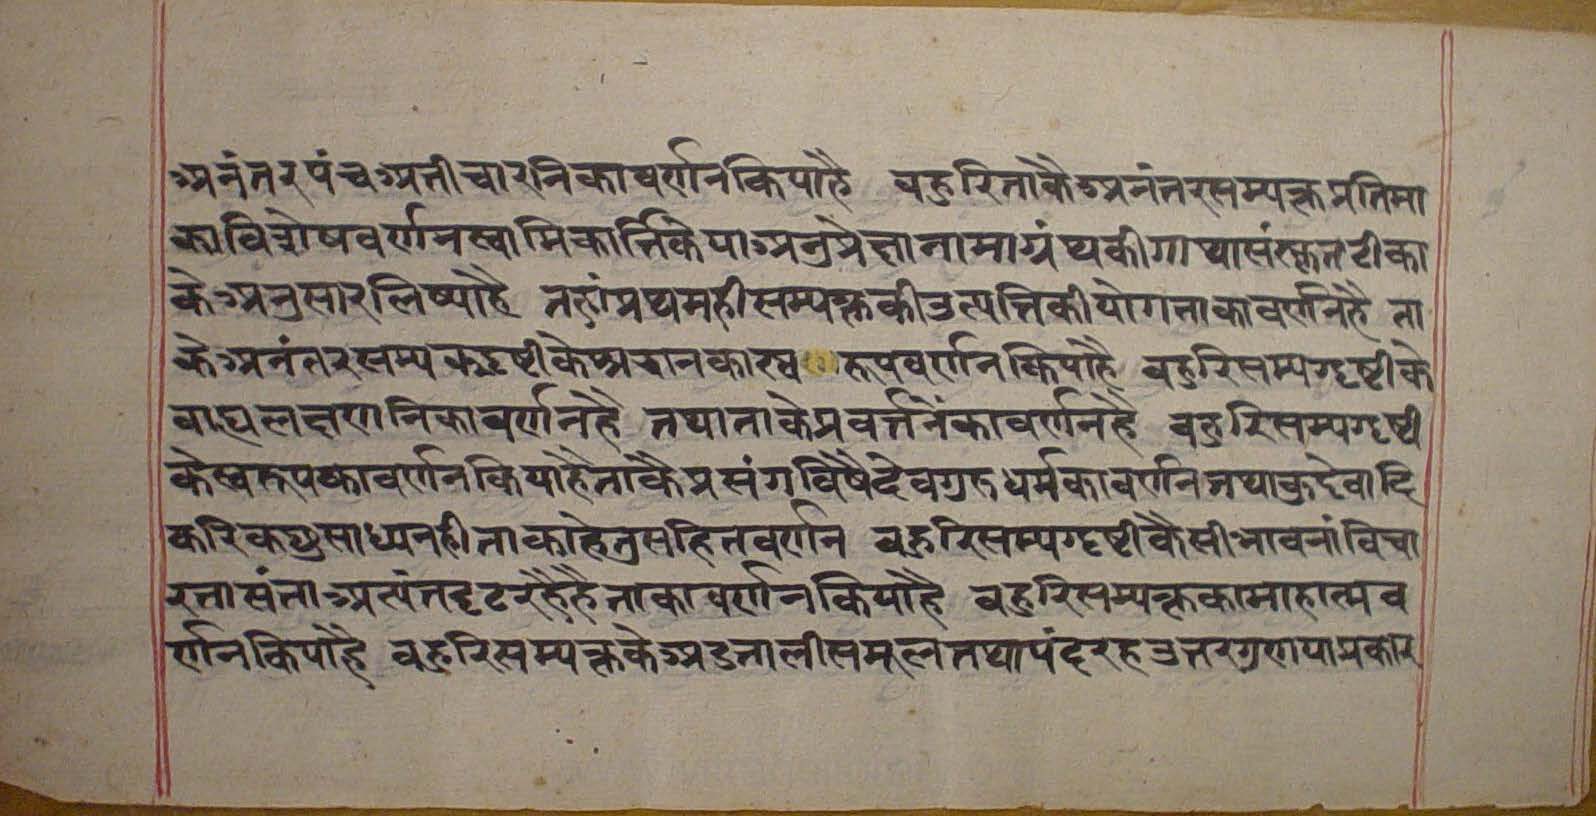 अनंतर पंच अतीचारनिका वर्णन किया है बहुरि ताकै अनंतर सम्यक्त प्रतिमा
का विशेष वर्णन स्वामिकार्त्तिकेया अनुप्रेक्षा नामा ग्रंथ की गाथा संस्कृत टीका
के अनुसार लिष्या है तहां प्रथम ही सम्यक्त की उत्पत्ति की योगता का वर्णन है ता
के अनंतर सम्यकदृष्टी के श्रधान का स्व रूप वर्णन किया है बहुरि सम्यग्दृष्टी के
वाह्य लक्षणनिका वर्णन है तथा ताके प्रवर्त्तनैं का वर्णन है बहुरि सम्यग्दृष्टी
के स्वरूप का वर्णन किया है ताकै प्रसंग विषै देव गुरु धर्म का वर्णन तथा कुदेवादि
करि कछु साध्य नही ताका हेतु सहित वर्णन बहुरि सम्यग्दृष्टी कैसी भावनां विचा
रता संता अत्यंत दृढ रहै है ताका वर्णन किया है बहुरि सम्यक्त का माहात्म व
र्णन किया है बहुरि सम्यक्त के अडतालीस मूल तथा पंद्रह उत्तर गुण या प्रकार